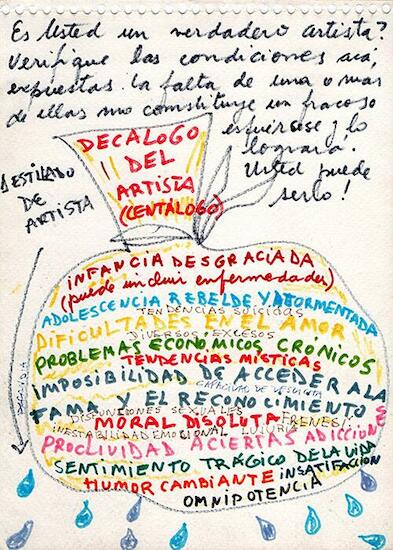 Es Usted un verdadero artista?
Verifique las condiciones acá
expuestas. la falta de una o mas
de ellas no constituye un fracaso
esfuércese y lo
logrará.
Usted puede
serlo!
DECALOGO
DEL
ARTISTA
(CENTÁLOGO)
DESTILADO
DE
ARTISTA
INFANCIA DESGRACIADA
(puede incluir enfermedades)
ADOLESCENCIA REBELDE Y ATORMENTADA
TENDENCIAS SUICIDAS
DIFICULTADES EN EL AMOR
DIVERSOS EXCESOS
PROBLEMAS ECONÓMICOS CRÓNICOS
TENDENCIAS MÍSTICAS
IMPOSIBILIDAD DE ACCEDER A LA
CAPACIDAD DE
FAMA Y EL RECONOCIMIENTO
DISFUNCIONES SEXUALES
FRENESÍ
MORAL DISOLUTA
INESTABILIDAD EMOCIONAL
LUJURIA
PROCLIVIDAD A CIERTAS ADICCIONES
SENTIMIENTO TRÁGICO DE LA VIDA
HUMOR CAMBIANTE
INSATISFACCION
OMNIPOTENCIA